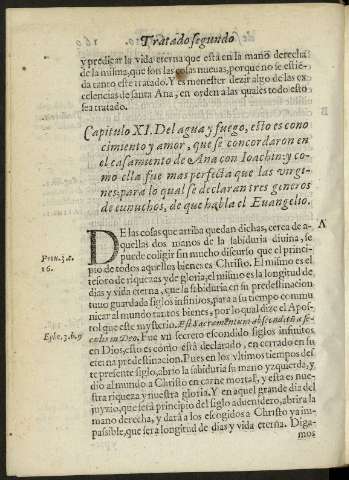 Tratado segundo
y predicar la vida eterna que está en la mano derecha
de la misma, que son las cosas nueuas, porque no se estiē
da tanto este tratado. Y es menester dezir algo de las ex
celencias de santa Ana, en orden a las quales todo esto
sea tratado.
Capitulo XI. Del agua y fuego, esto es cono
cimiento y amor, que se concordaron en
el casamiento de Ana con Ioachin: y co-
mo ella fue mas perfecta que las virge-
nes: para lo qual se declaran tres generos
de eunuchos, de que habla el Euangelio.
A
DE las cosas que arriba quedan dichas, cerca de a-
quellas dos manos de la sabiduria diuina, se
puede coligir sin mucho discurso que el princi-
pio de todos aquellos bienes es Christo. El mismo es el
Prou. 3. a.
16.
tesoro de riquezas y de gloria, el mismo es la longitud de
dias y vida eterna, que la sabiduria en su predestinacion
tuuo guardada siglos infinitos, para a su tiempo commu
nicar al mundo tantos bienes, por lo qual dize el Apos-
tol que este mysterio, Est sacramentum absconditum a se-
Ephe. 3. b. 9
culis in Deo. Fue vn secreto escondido siglos infinitos
en Dios, esto es como está declarado, en cerrado en su
eterna predestinacion. Pues en los vltimos tiempos des
te presente siglo, abrio la sabiduria su mano yzquerda, y
dio al mundo a Christo en carne mortal, y esta es nues-
tra riqueza y nuestra gloria. Y en aquel grande dia del
juyzio, que será principio del siglo aduenidero, abrira la
mano derecha, y dará a los escogidos a Christo ya im-
passible, que sera longitud de dias y vida eterna. Diga-
mos